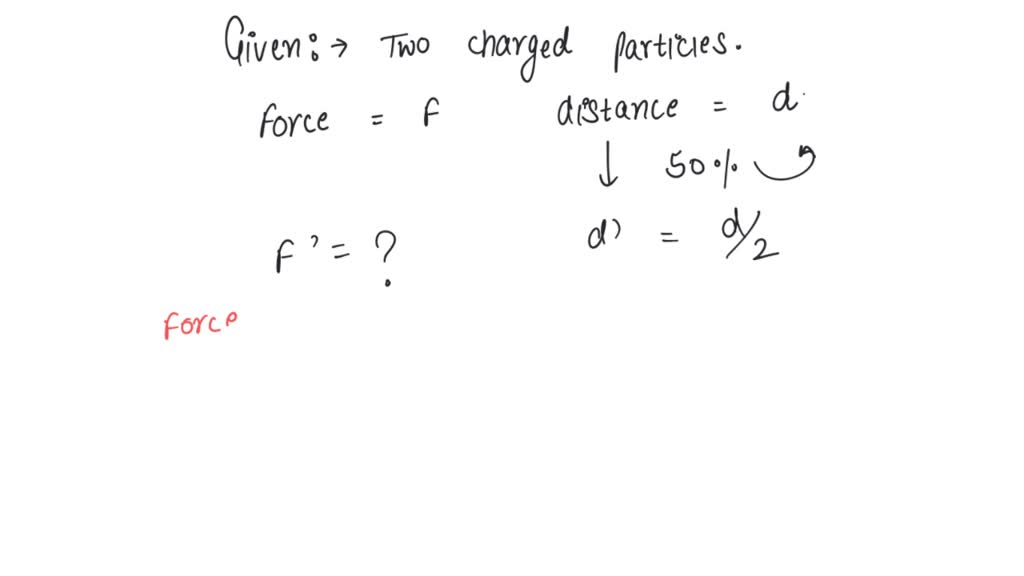 Given:→ Two charged particles.
force = F distance = d
↓ 50%
F' = ? d' = d/2
force